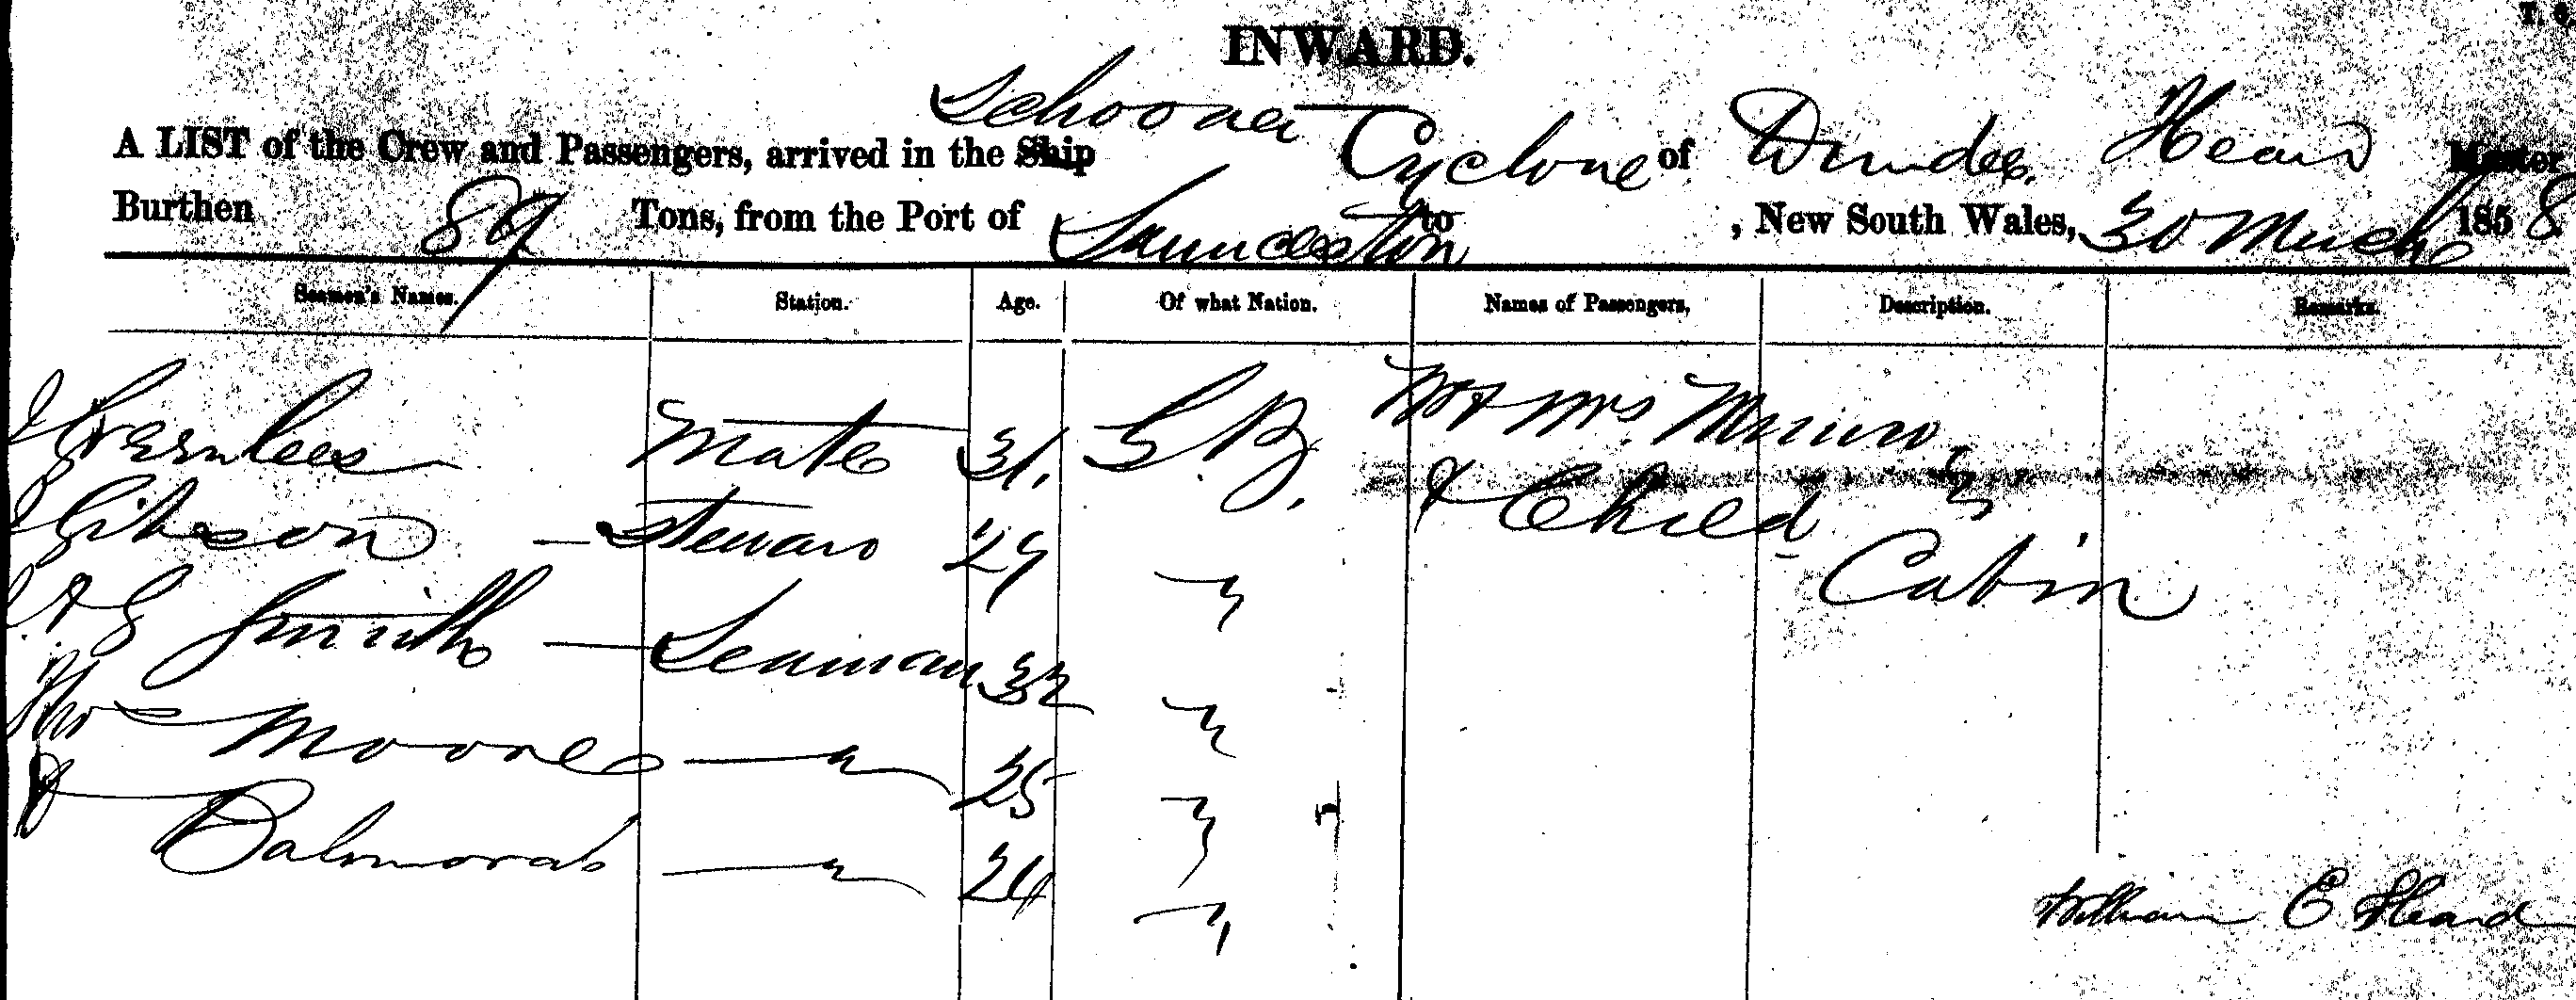 INWARD.
Schooner
A LIST of the Crew and Passengers, arrived in the Ship Cyclone of Dundee, Heard Master
Burthen 89 Tons, from the Port of Launceston to , New South Wales, 30 March 1858
Seamen's Names. Station. Age. Of what Nation. Names of Passengers, Description. Remarks.
J Greenlees Mate 31. G.B. Mr & Mrs Munro
J Gibson Steward 29 " & Child Cabin
Smith Seaman 32 "
Thos Moore " 25 "
Balmorab " 24 "
William E Heard